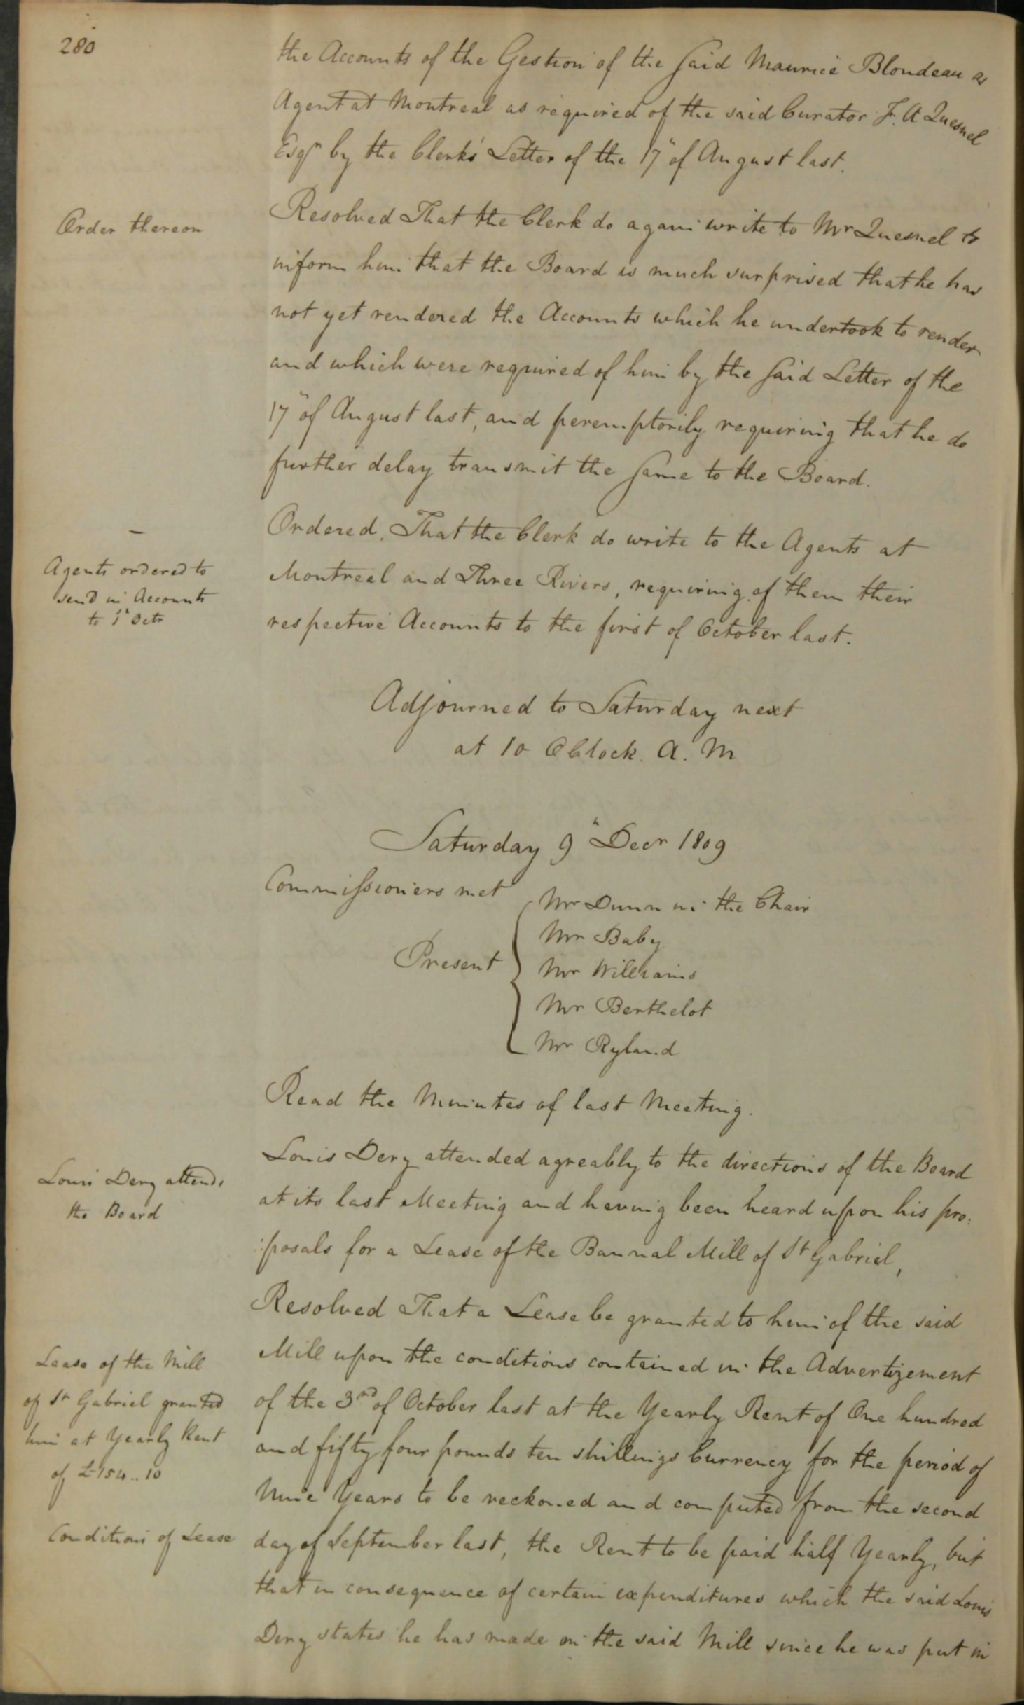 280
the Accounts of the Gestion of the said Maurice Blondeau as
Agent at Montreal as required of the said Curator F. A Quesnel
Esqr by the Clerk's Letter of the 17" of August last.
Order thereon
Resolved That the Clerk do again write to Mr Quesnel to
inform him that the Board is much surprised that he has
not yet rendered the Accounts which he undertook to render
and which were required of him by the said Letter of the
17" of August last, and peremptorily requiring that he do
further delay transmit the same to the Board.
Agents ordered to
send in Accounts
to 1st Octr
Ordered, That the Clerk do write to the Agents at
Montreal and Three Rivers, requiring of them their
respective Accounts to the first of October last.
Adjourned to Saturday next
at 10 OClock A. M
Saturday 9" Decr 1809
Commissioners met
Present
Mr Dunn in the Chair
Mr Baby
Mr Williams
Mr Berthelot
Mr Ryland
Read the Minutes of last Meeting.
Louis Dery attends
the Board
Louis Dery attended agreably to the directions of the Board
at its last Meeting and having been heard upon his pro:
:posals for a Lease of the Bannal Mill of St Gabriel,
Lease of the Mill
of St Gabriel granted
him at Yearly Rent
of £154..10
Resolved That a Lease be granted to him of the said
Mill upon the conditions contained in the Advertizement
of the 3rd of October last at the Yearly Rent of One hundred
and fifty four pounds ten shillings Currency for the period of
Nine Years to be reckoned and computed from the second
Conditions of Lease
day of September last, the Rent to be paid half Yearly, but
that in consequence of certain expenditures which the said Louis
Dery states he has made on the said Mill since he was put in